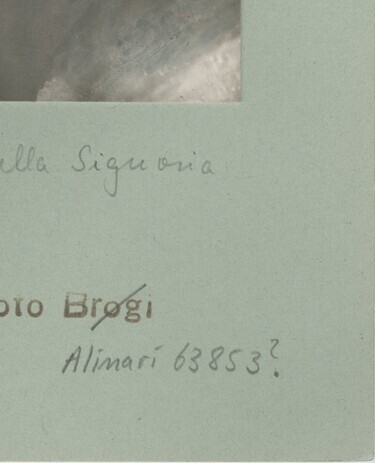 ella Signoria
oto Brogi
Alinari 63853?